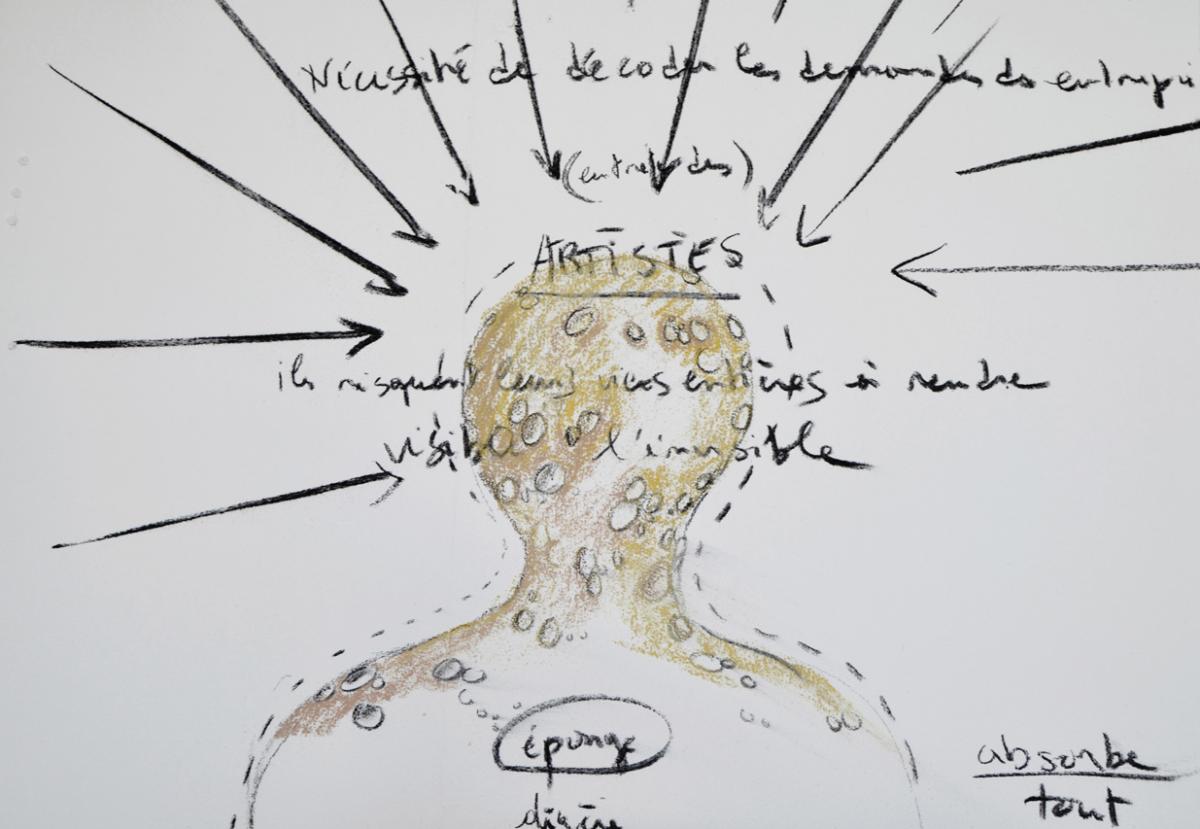 Nécessité de décoder les demandes
(entre des)
ARTISTES
ils risquent leurs vies entières à rendre
visible l'invisible
éponge
digère
absorbe
tout